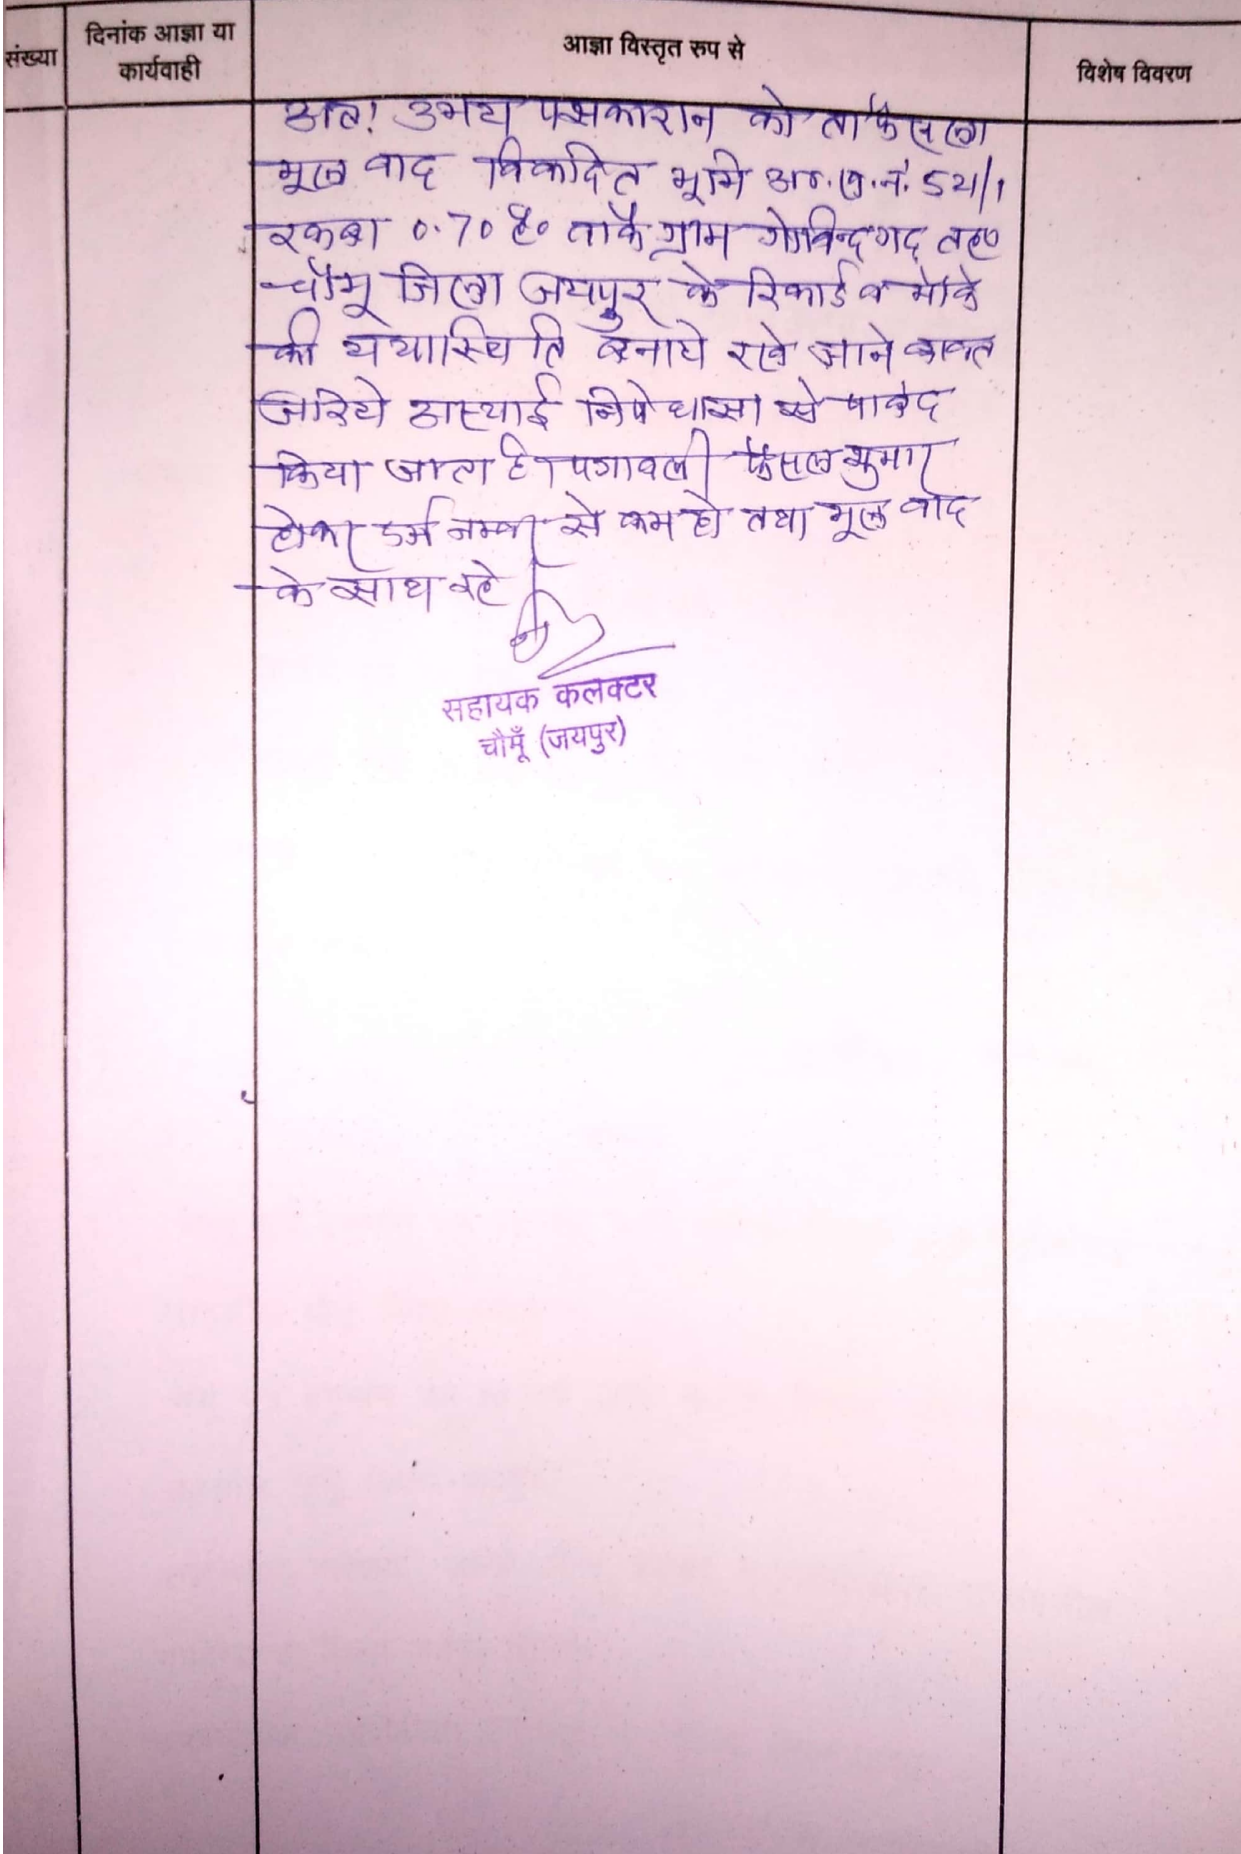 संख्या
दिनांक आज्ञा या
कार्यवाही
आज्ञा विस्तृत रुप से
विशेष विवरण
अतः उभय पक्षकारान को ताफैसला
मूल वाद विवादित भूमि आ.ख.नं. 521/1
रकबा 0.70 है० वाकै ग्राम गोविन्दगढ तह०
चौमू जिला जयपुर के रिकार्ड व मौके
की यथास्थिति बनाये रखे जाने बाबत
जरिये अस्थाई निषेधाज्ञा से पाबंद
किया जाता है। पत्रावली फैसल शुमार
होकर दर्ज नम्बर से कम हो तथा मूल वाद
के साथ रहे
सहायक कलक्टर
चौमूँ (जयपुर)